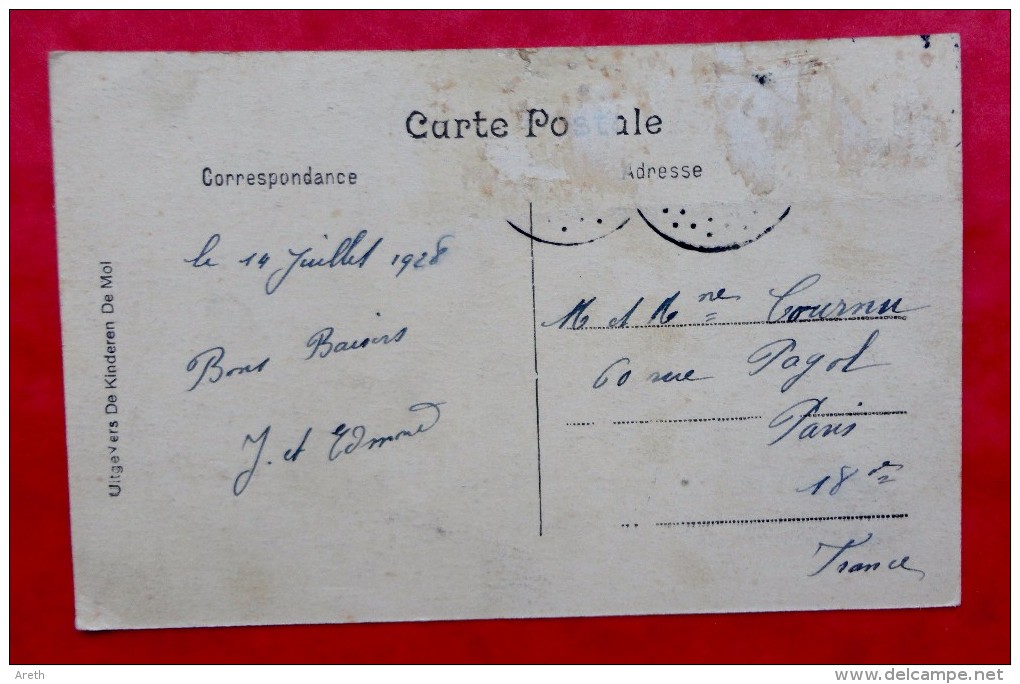 Carte Postale
Correspondance
Adresse
le 14 Juillet 1928
Bons Baisers
J. et Edmond
M et Mme Cournu
60 rue Pajol
Paris
18e
France
Uitgevers De Kinderen De Mol
Areth
www.delcampe.net